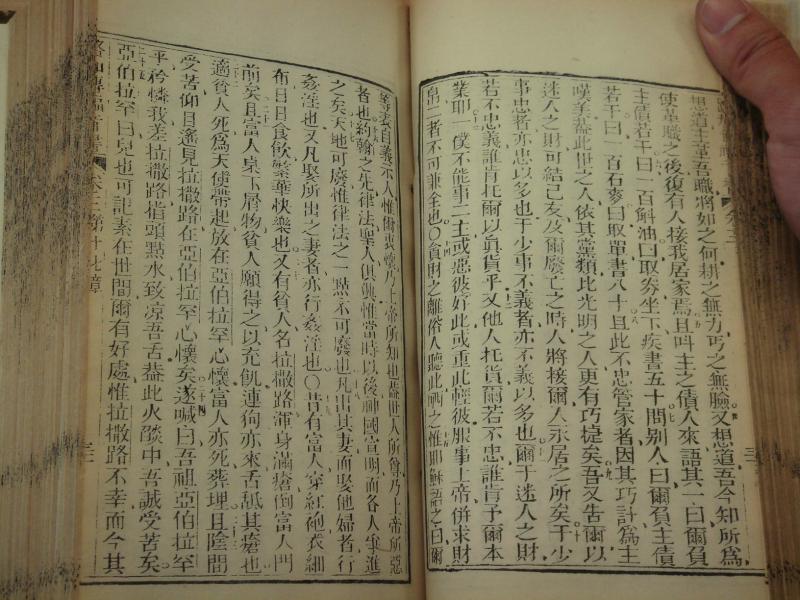 想道主革吾職將如之何耕之無力丐之無臉又想道吾今知所爲
使革職之後復有人接我居家焉且叫主之債人來語其一曰爾負
主債若干曰一百斛油曰取券坐下疾書五十問别人曰爾負主債
若干曰一百石麥曰取單書八十且此不忠管家者因其巧計爲主
嘆美蓋此世之人依其黨類比光明之人更有巧捷矣吾又告爾以
迷人之財可結己友及爾廢亡之時人將接爾人永居之所矣于少
事忠者亦忠以多也于少事不義者亦不義以多也爾于迷人之財
若不忠誰肯托爾以眞貨乎又他人托貨爾若不忠誰肯予爾本
業耶一僕不能事二主或惡彼好此或重此輕彼服事上帝併求財
帛二者不可兼全也〇貪財之離俗人聽此哂之惟耶穌語之曰爾
等妻自義示人惟爾裏懷乃上帝所知也蓋世人所尊乃上帝所惡
者也約翰之先律法聖人俱興惟當時以後神國宣明而各人爭進
之矣天地可廢惟律法之一點不可廢也凡出其妻而娶他婦者行
姦淫也又凡娶所出之妻者亦行姦淫也〇昔有富人穿紅袍衣細
布日日食飲繁華快樂也又有貧人名拉撒路渾身滿瘡倒富人門
前矣且富人桌下屑物貧人願得之以充飢連狗亦來舌舐其瘡也
適貧人死爲天使帶起放在亞伯拉罕心懷富人亦死葬埋且陰間
受苦仰目遙見拉撒路在亞伯拉罕心懷矣遂喊曰吾祖亞伯拉罕
乎矜憐我差拉撒路指頭點水致凉吾舌蓋此火燄中吾誠受苦矣
亞伯拉罕曰兒也可記素在世間爾有好處惟拉撒路不幸而今其
路加傳福音書 卷三第十六章